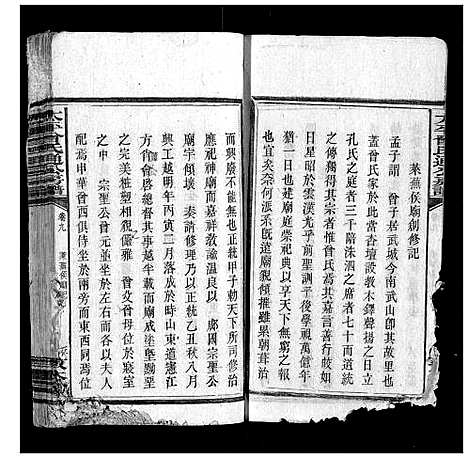 萊蕪侯廟創修記
孟子謂 曾子居武城今南武山卽其故里也
蓋曾氏家於此去杏壇設教木鐸聲揚之日
孔氏之庭者三千陪洙泗之席者七十而道統
之傳得其宗者惟曾氏爲其嘉言善行皎如
日星昭於雲漢光乎前聖訓乎後學視萬億年
猶一日也建廟庭崇祀典以享天下無窮之報
宜矣奈何漲系既遠廟貌傾摧雖累朝葺治
興廢不能無也正統甲子勅天下所司修治
應祀神廟而嘉祥教諭溫良以 郕國宗聖公
廟宇傾壞 奏請修理乃以正統乙丑秋八月
興工越明年丙寅二月落成於時山東憲道
方有 曾啓總督其事越年而廟成塗塈黝堊
之完美粧塑之貌儼雅 曾父曾母位於寢室
之中 宗聖公曾元並坐於中各以夫人
配焉曾申華曾西俱侍坐於兩旁而東西同焉位
卷九
萊蕪侯廟